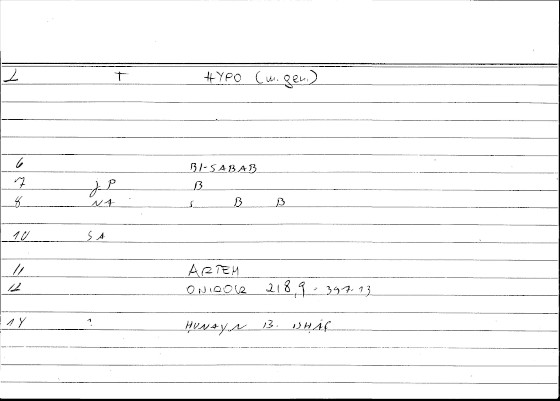 2 T HYPO (w. gen.)
6 BI-SABAB
7 J P B
8 NA S B B
10 SA
11 ARTEM
12 ONIROCR 218,9 - 397.13
14 ? HUNAYN B. ISHĀQ